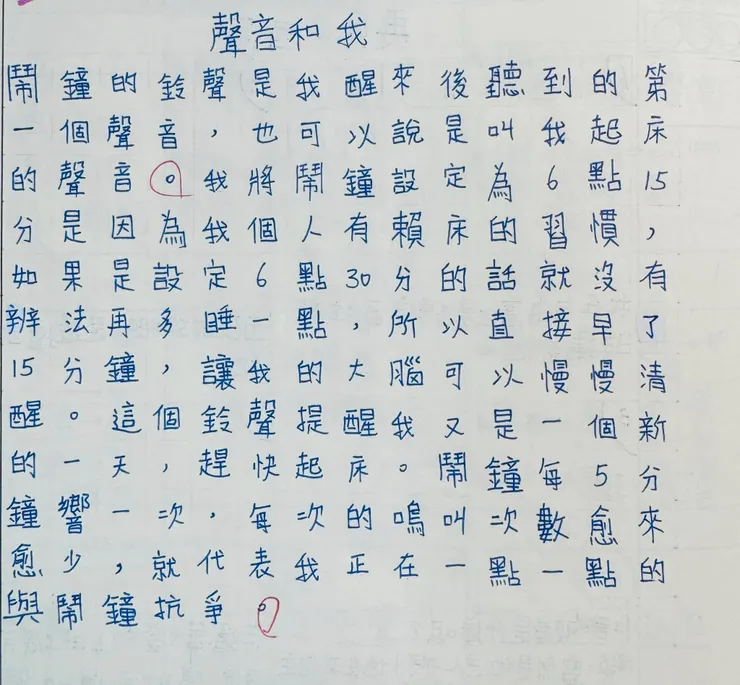 聲音和我
鬧鐘的鈴聲是我醒來後聽到的第
一個聲音，也可以說是叫我起床
的聲音。我將鬧鐘設定為6點15
分是因為我個人有賴床的習慣，
如果是設定6點30分的話就沒有
辦法再多睡一點，所以直接早了
15分鐘，讓我的大腦可以慢慢清
醒。這個鈴聲提醒我又是一個新
的一天，趕快起床。鬧鐘每5分
鐘響一次，每次的鳴叫次數愈來
愈少，就代表我正在一點一點的
與鬧鐘抗爭。